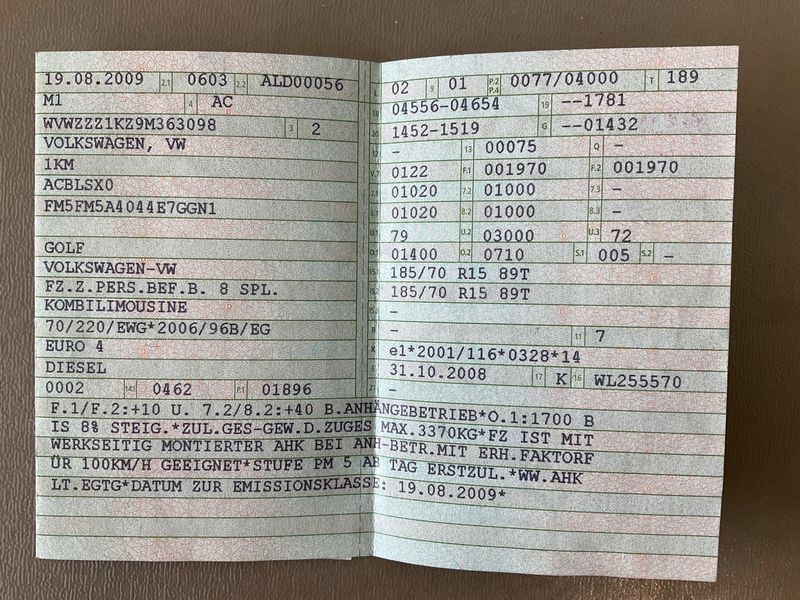 19.08.2009 2.1 0603 2.2 ALD00056
M1 4 AC
WVWZZZ1KZ9M363098 3 2
VOLKSWAGEN, VW
1KM
ACBLSX0
FM5FM5A4044E7GGN1
GOLF
VOLKSWAGEN-VW
FZ.Z.PERS.BEF.B. 8 SPL.
KOMBILIMOUSINE
70/220/EWG*2006/96B/EG
EURO 4
DIESEL
0002 14.1 0462 P.1 01896
L 02 9 01 P.2 P.4 0077/04000 T 189
18 04556-04654 19 --1781
20 1452-1519 G --01432
12 - 13 00075 Q -
V.7 0122 F.1 001970 F.2 001970
7.1 01020 7.2 01000 7.3 -
8.1 01020 8.2 01000 8.3 -
U.1 79 U.2 03000 U.3 72
O.1 01400 O.2 0710 S.1 005 S.2 -
15.1 185/70 R15 89T
15.2 185/70 R15 89T
-
R - 11 7
K e1*2001/116*0328*14
6 31.10.2008 17 K 16 WL255570
21 -
F.1/F.2:+10 U. 7.2/8.2:+40 B.ANHÄNGEBETRIEB*O.1:1700 B
IS 8% STEIG.*ZUL.GES-GEW.D.ZUGES MAX.3370KG*FZ IST MIT
WERKSEITIG MONTIERTER AHK BEI ANH-BETR.MIT ERH.FAKTORF
ÜR 100KM/H GEEIGNET*STUFE PM 5 AB TAG ERSTZUL.*WW.AHK
LT.EGTG*DATUM ZUR EMISSIONSKLASSE: 19.08.2009*